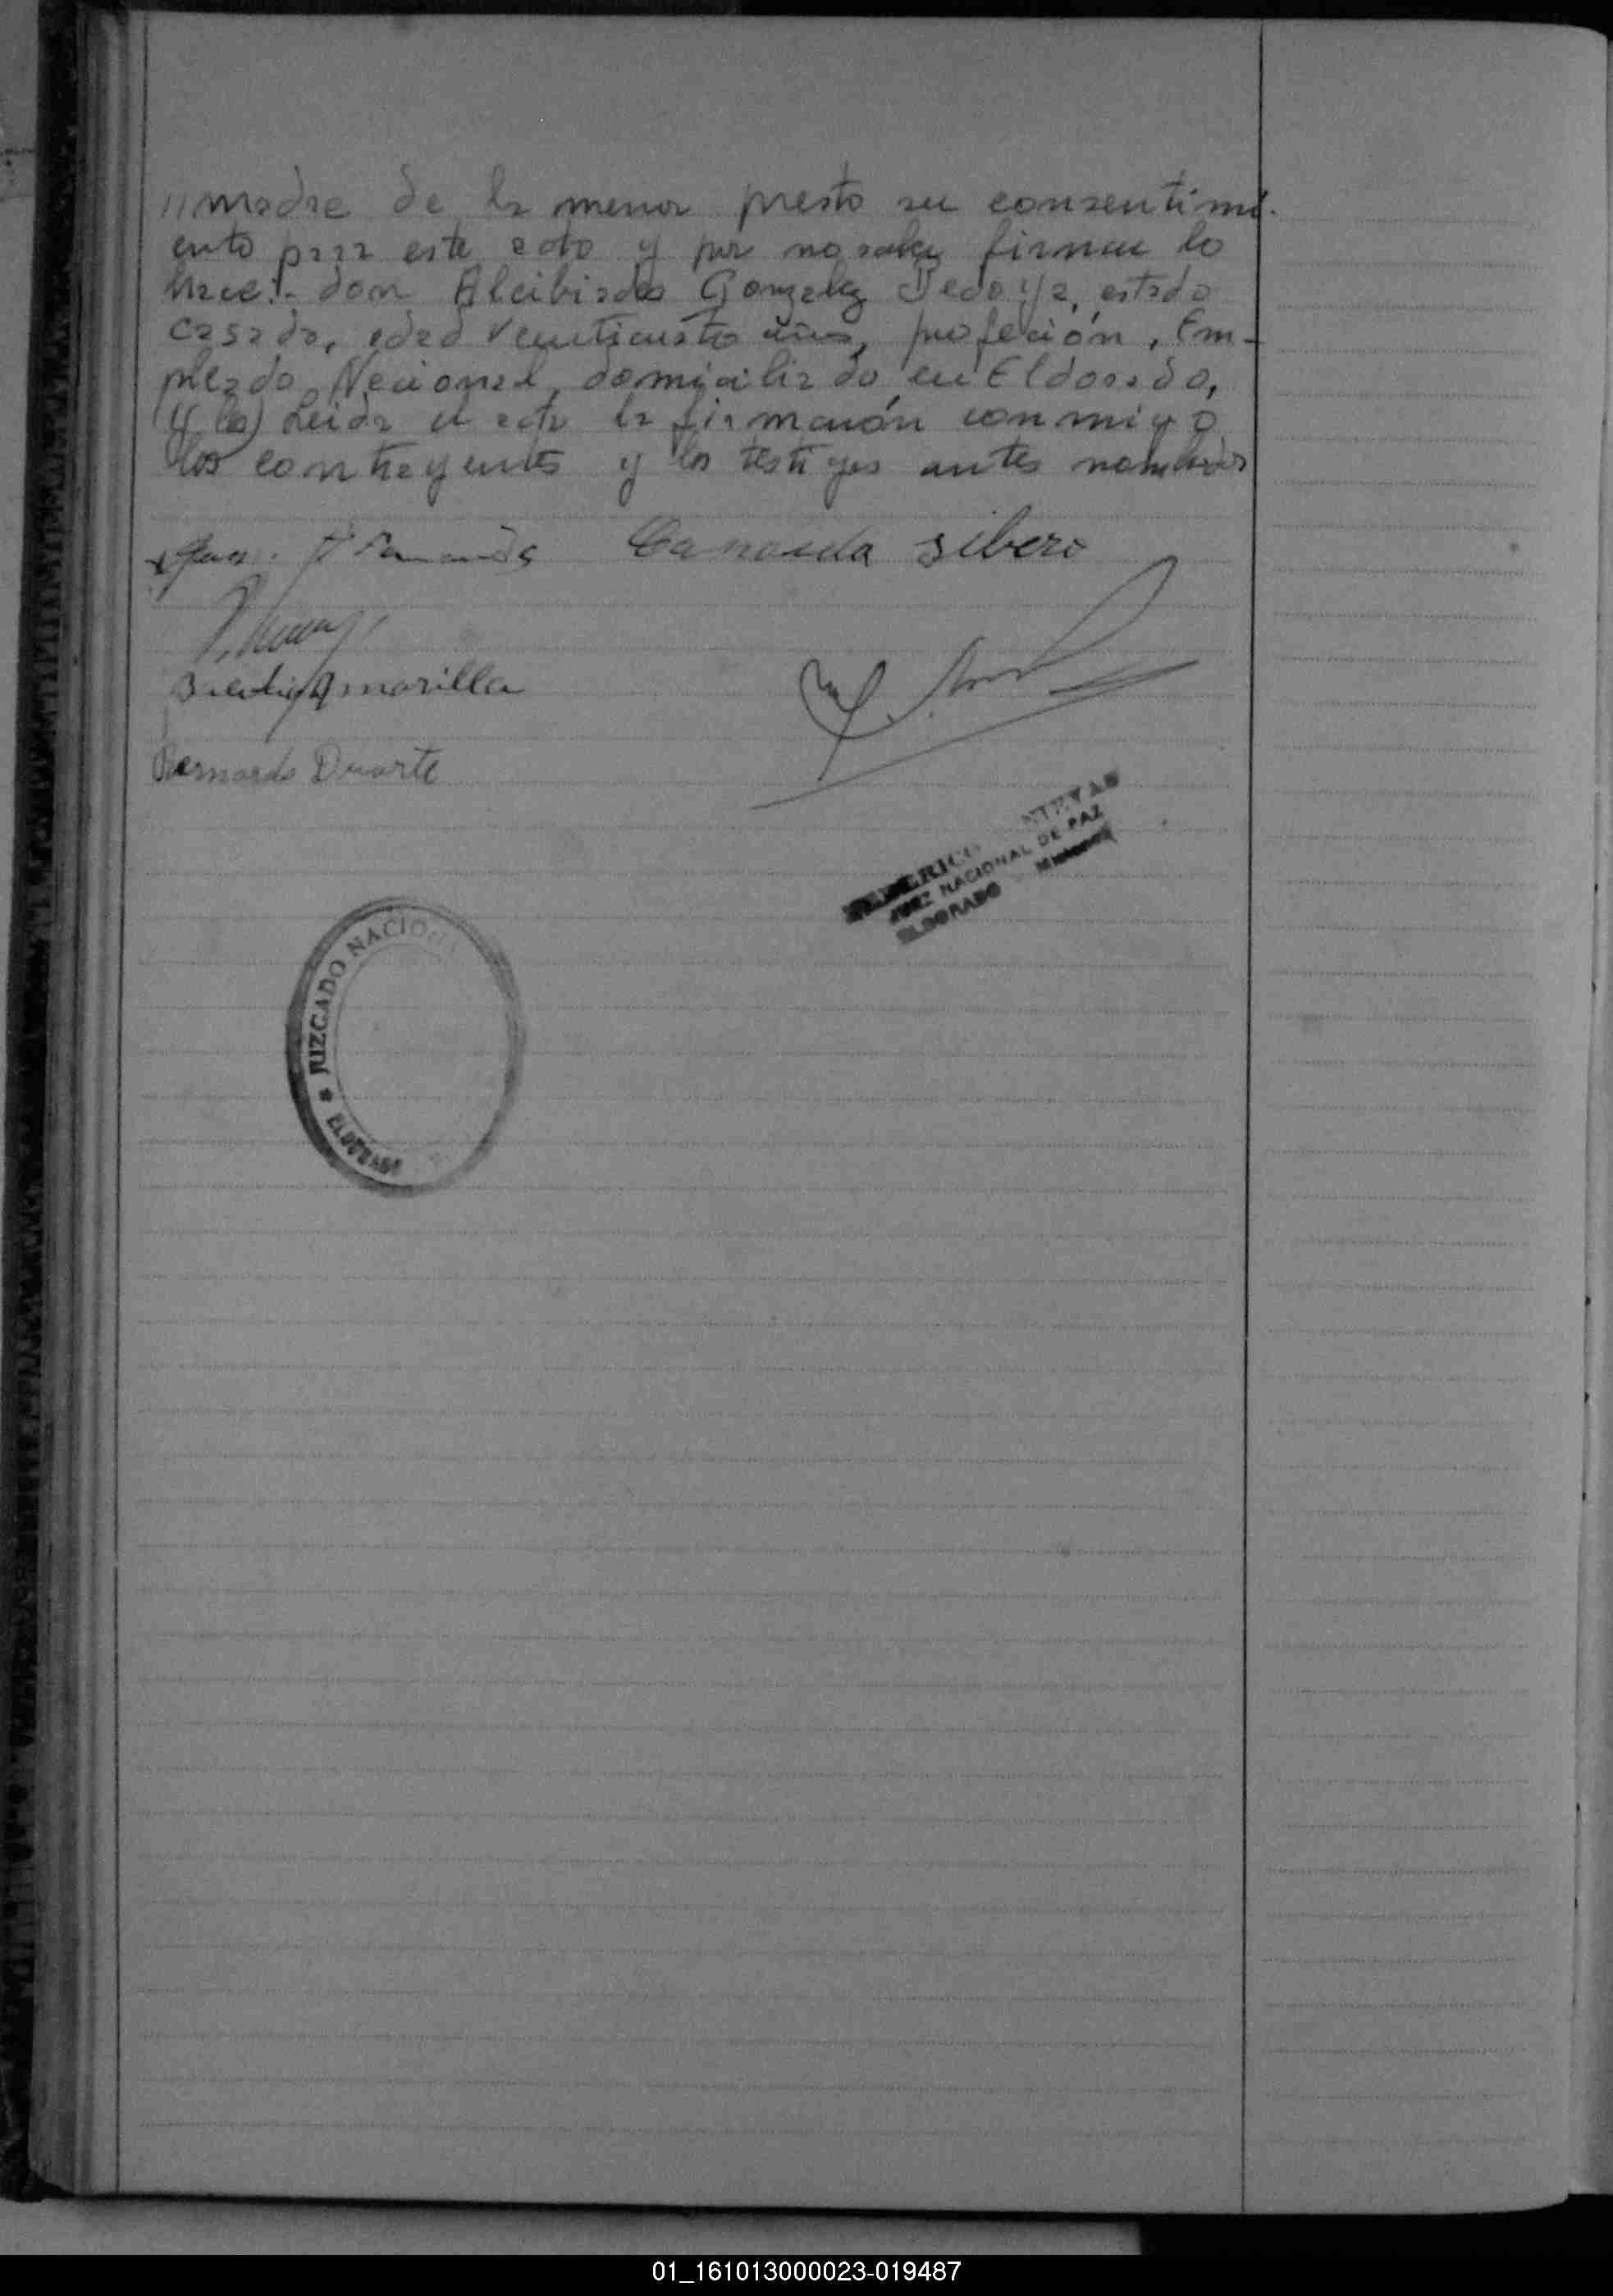 //madre de la menor presto su consentimi-
ento para este acto y por no saber firmar lo
hace:- don Alcibiades Gonzalez Bedoya, estado
casado, edad veinticuatro años, profeción, Em-
pleado Nacional, domiciliado en Eldorado,
Leida el acta la firmarón conmigo
los contrayentes y los testigos antes nombrados
sibero
Amarilla
Bernardo Duarte
NIEVAS
JUEZ NACIONAL DE PAZ
ELDORADO Misiones
JUZGADO NACIONAL
ELDORADO
01_161013000023-019487